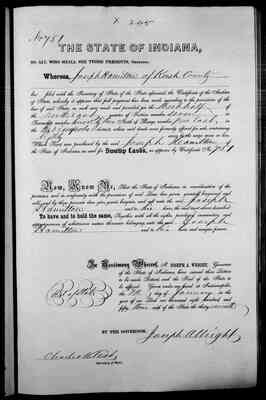 245
No 751
THE STATE OF INDIANA,
TO ALL WHO SHALL SEE THESE PRESENTS, GREETING:
Whereas, Joseph Hamilton of Rush County
has filed with the Secretary of the State aforesaid, the Certificate of the Auditor
of State, whereby it appears that full payment has been made according to the provisions of the
law of said State, in such case made and provided for the West half
of the quarter of Section number seven in
Township number of Range number East, in
the district, when said lands were formerly offered for sale, containing
Which Tract was purchased by the said Joseph Hamilton
of the State of Indiana, as and for Swamp Lands, as appears by Certificate No. 751
Now, Know Ye, That the State of Indiana in consideration of the
premises, and in conformity with the provisions of said Law, has given, granted, bargained and
sold, and by these presents does give, grant, bargain, and sell unto the said Joseph
Hamilton and to his heirs, the said tract above described:
To have and to hold the same, Together with all the rights, privileges, immunities, and
appurtenances of whatsoever nature thereunto belonging unto the said Joseph
Hamilton and to his heirs and assigns forever.
In Testimony Whereof, I, JOSEPH A. WRIGHT, Governor
of the State of Indiana, have caused these Letters
to be made Patent, and the Seal of the State to
be affixed. Given under my hand, at Indianapolis,
the day of January in the
year of our Lord one thousand eight hundred and
fifty three and of the State the thirty seventh
BY THE GOVERNOR, Joseph A Wright,
Charles H. Test,
Secretary of State.